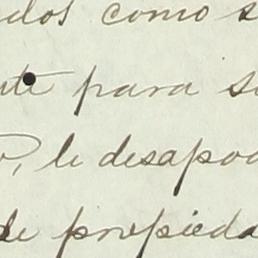 ados como s
nte para su
o, le desapod
de propieda